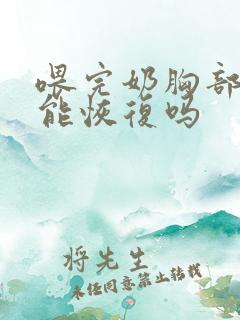 喂完奶胸部
能恢復吗
将先生
未经同意禁止转载